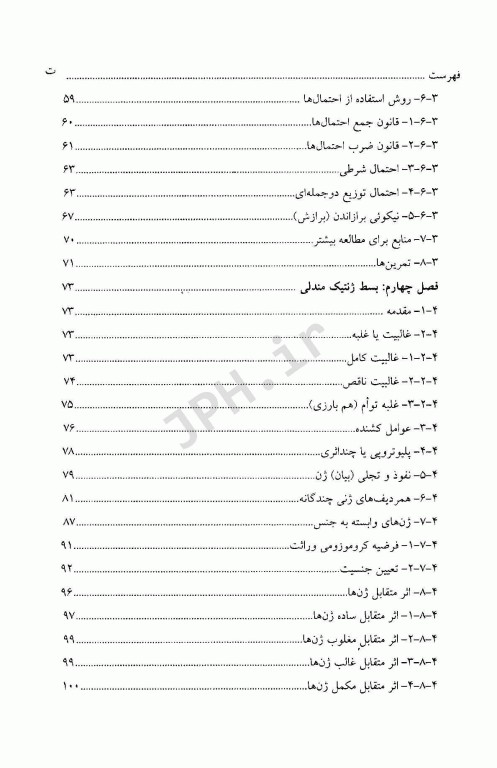 فهرست ........ ت
۳-۶- روش استفاده از احتمال‌ها ........ ۵۹
۳-۶-۱- قانون جمع احتمال‌ها ........ ۶۰
۳-۶-۲- قانون ضرب احتمال‌ها ........ ۶۱
۳-۶-۳- احتمال شرطی ........ ۶۳
۳-۶-۴- احتمال توزیع دوجمله‌ای ........ ۶۳
۳-۶-۵- نیکوئی برازاندن (برازش) ........ ۶۷
۳-۷- منابع برای مطالعه بیشتر ........ ۷۰
۳-۸- تمرین‌ها ........ ۷۱
فصل چهارم: بسط ژنتیک مندلی ........ ۷۳
۴-۱- مقدمه ........ ۷۳
۴-۲- غالبیت یا غلبه ........ ۷۳
۴-۲-۱- غالبیت کامل ........ ۷۳
۴-۲-۲- غالبیت ناقص ........ ۷۴
۴-۲-۳- غلبه توأم (هم بارزی) ........ ۷۵
۴-۳- عوامل کشنده ........ ۷۶
۴-۴- پلیوتروپی یا چنداثری ........ ۷۸
۴-۵- نفوذ و تجلی (بیان) ژن ........ ۷۹
۴-۶- همردیف‌های ژنی چندگانه ........ ۸۱
۴-۷- ژن‌های وابسته به جنس ........ ۸۷
۴-۷-۱- فرضیه کروموزومی وراثت ........ ۹۱
۴-۷-۲- تعیین جنسیت ........ ۹۲
۴-۸- اثر متقابل ژن‌ها ........ ۹۶
۴-۸-۱- اثر متقابل ساده ژن‌ها ........ ۹۷
۴-۸-۲- اثر متقابل مغلوب ژن‌ها ........ ۹۹
۴-۸-۳- اثر متقابل غالب ژن‌ها ........ ۹۹
۴-۸-۴- اثر متقابل مکمل ژن‌ها ........ ۱۰۰
JPH.ir